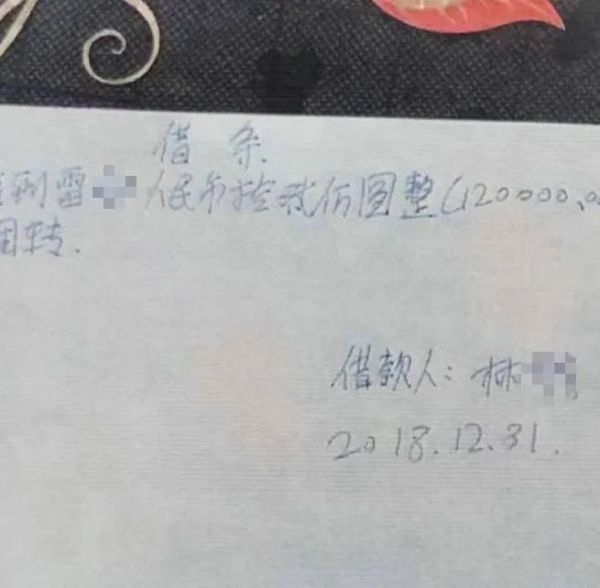 借条
到雷 人民币控贰仿圆整(120000.0
周转.
借款人: 林
2018.12.31.